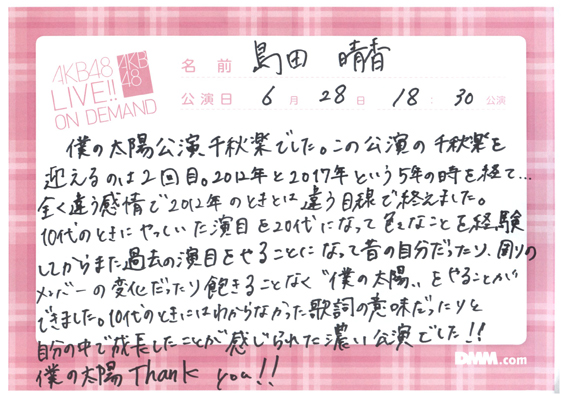 AKB48
LIVE!!
ON DEMAND
AKB
48
名前 島田 晴香
公演日 6月 28日 18:30公演
僕の太陽公演千秋楽でした。この公演の千秋楽を
迎えるのは2回目。2012年と2017年という5年の時を経て…
全く違う感情で2012年のときとは違う目線で終えました。
10代のときにやっていた演目を20代になって色々なことを経験
してからまた過去の演目をやることになって昔の自分だったり、周りの
メンバーの変化だったり飽きることなく"僕の太陽"をやることが
できました。10代のときにはわからなかった歌詞の意味だったりと
自分の中で成長したことが感じられた濃い公演でした!!
僕の太陽 Thank you!!
DMM.com